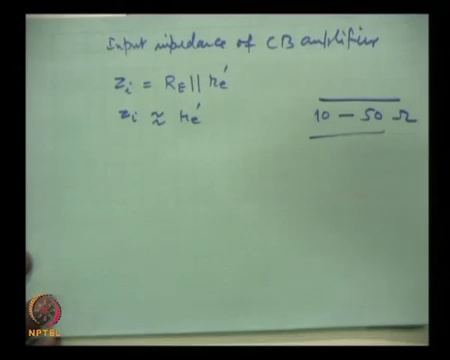 Input impedance of CB amplifier
Zi = RE || re'
Zi ≈ re'
10 – 50 Ω
NPTEL